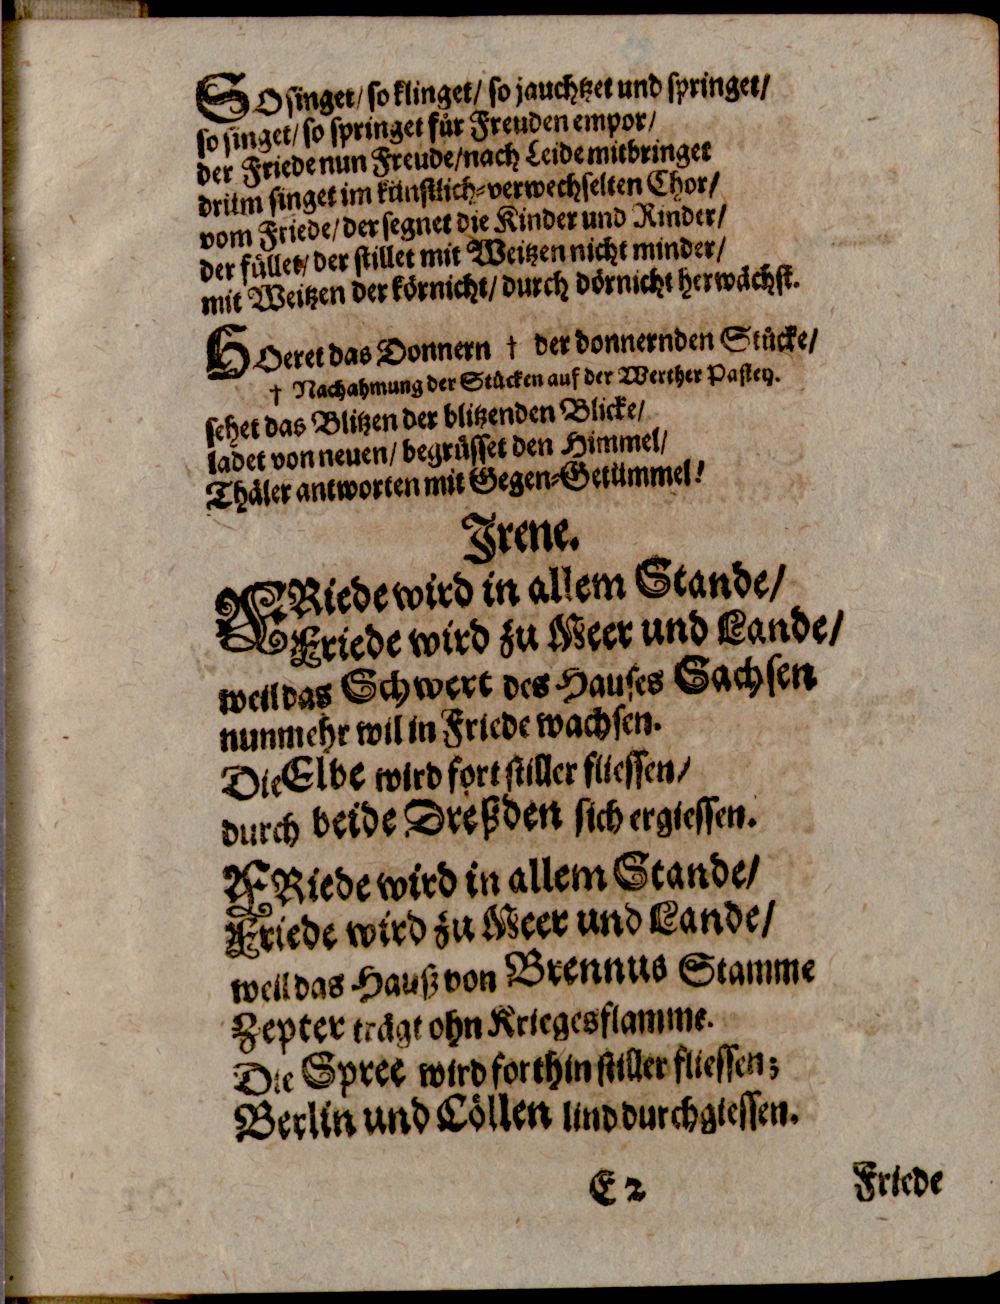 SO singet/ so klinget/ so jauchtzet und springet/
so singet/ so springet für Freuden empor/
der Friede nun Freude/ nach Leide mitbringet
drüm singet im künstlich-verwechselten Chor/
vom Friede/ der segnet die Kinder und Rinder/
der füllet/ der stillet mit Weitzen nicht minder/
mit Weitzen der körnicht/ durch dörnicht herwächst.
HOeret das Donnern † der donnernden Stücke/
† Nachahmung der Stücken auf der Werther Pastey.
sehet das Blitzen der blitzenden Blicke/
ladet von neuen/ begrüsset den Himmel/
Thäler antworten mit Gegen-Getümmel!
Irene.
FRiede wird in allem Stande/
Friede wird zu Meer und Lande/
weil das Schwert des Hauses Sachsen
nunmehr wil in Friede wachsen.
Die Elbe wird fort stiller fliessen/
durch beide Dreßden sich ergiessen.
FRiede wird in allem Stande/
Friede wird zu Meer und Lande/
weil das Hauß von Brennus Stamme
Zepter trägt ohn Kriegesflamme.
Die Spree wird forthin stiller fliessen;
Berlin und Cöllen lind durchgiessen.
E 2 Friede